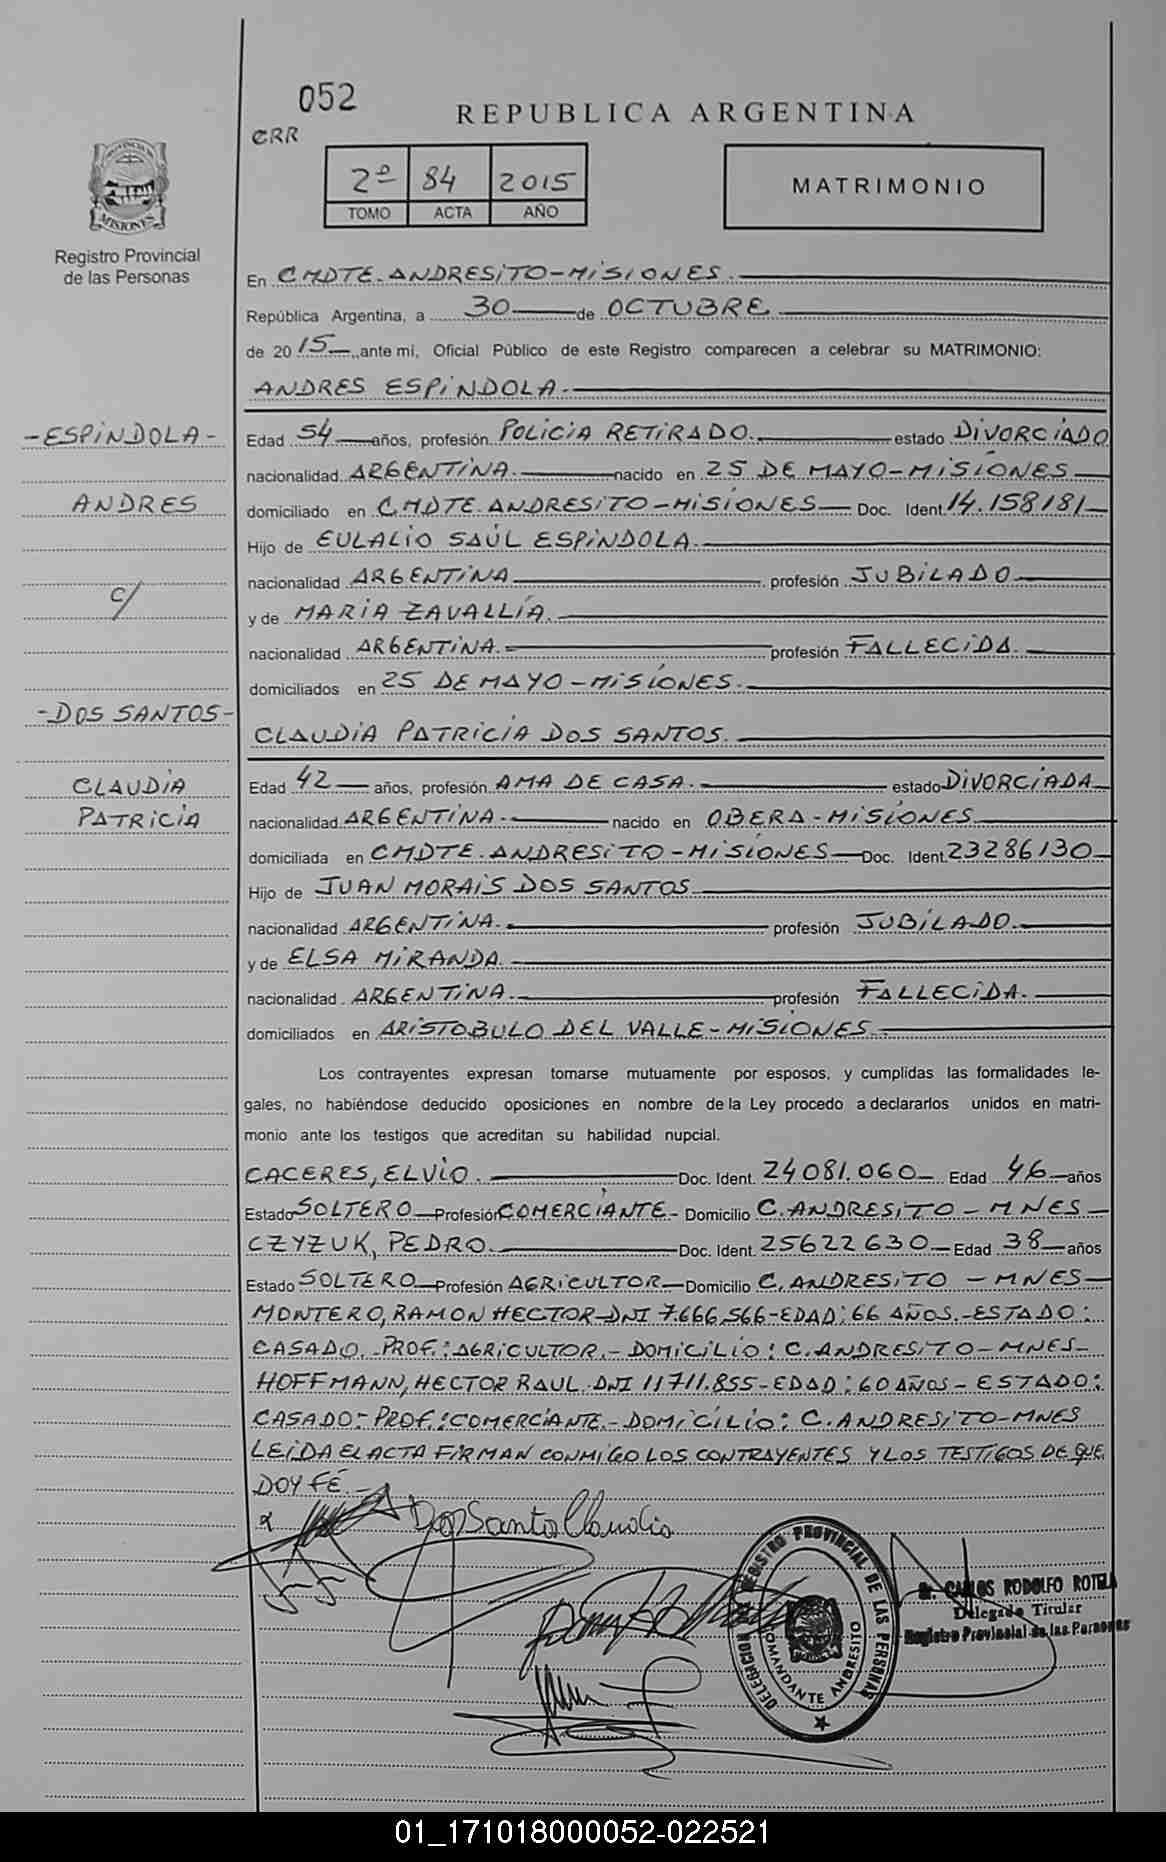 052
REPUBLICA ARGENTINA
CRR
2º 84 2015
TOMO ACTA AÑO
MATRIMONIO
PROVINCIA DE
MISIONES
Registro Provincial
de las Personas
En CMDTE. ANDRESITO-MISIONES.
República Argentina, a 30 de OCTUBRE
de 2015, ante mi, Oficial Público de este Registro comparecen a celebrar su MATRIMONIO:
ANDRES ESPINDOLA.
-ESPINDOLA-
ANDRES
c/
-DOS SANTOS-
CLAUDIA
PATRICIA
Edad 54 años, profesión POLICIA RETIRADO. estado DIVORCIADO
nacionalidad ARGENTINA. nacido en 25 DE MAYO-MISIONES
domiciliado en CMDTE. ANDRESITO-MISIONES Doc. Ident. 14.158181
Hijo de EULALIO SAÚL ESPINDOLA.
nacionalidad ARGENTINA profesión JUBILADO
y de MARIA ZAVALLÍA.
nacionalidad ARGENTINA. profesión FALLECIDA.
domiciliados en 25 DE MAYO-MISIONES.
CLAUDIA PATRICIA DOS SANTOS.
Edad 42 años, profesión AMA DE CASA. estado DIVORCIADA
nacionalidad ARGENTINA. nacido en OBERA-MISIONES
domiciliada en CMDTE. ANDRESITO-MISIONES Doc. Ident. 23286130
Hijo de JUAN MORAIS DOS SANTOS
nacionalidad ARGENTINA. profesión JUBILADO.
y de ELSA MIRANDA.
nacionalidad ARGENTINA. profesión FALLECIDA.
domiciliados en ARISTOBULO DEL VALLE-MISIONES.
Los contrayentes expresan tomarse mutuamente por esposos, y cumplidas las formalidades le-
gales, no habiéndose deducido oposiciones en nombre de la Ley procedo a declararlos unidos en matri-
monio ante los testigos que acreditan su habilidad nupcial.
CACERES, ELVIO. Doc. Ident. 24081.060 Edad 46 años
Estado SOLTERO Profesión COMERCIANTE- Domicilio C. ANDRESITO-MNES
CZYZUK, PEDRO. Doc. Ident. 25622630 Edad 38 años
Estado SOLTERO Profesión AGRICULTOR Domicilio C. ANDRESITO-MNES
MONTERO, RAMON HECTOR-DNI 7.666.566-EDAD: 66 AÑOS.-ESTADO:
CASADO.-PROF.: AGRICULTOR.-DOMICILIO: C. ANDRESITO-MNES-
HOFFMANN, HECTOR RAUL. DNI 11711.855-EDAD: 60 AÑOS-ESTADO:
CASADO-PROF.: COMERCIANTE.-DOMICILIO: C. ANDRESITO-MNES
LEIDA EL ACTA FIRMAN CONMIGO LOS CONTRAYENTES Y LOS TESTIGOS DE QUE
DOY FÉ.-
Dos Santos Claudia
DELEGACION REGISTRO PROVINCIAL DE LAS PERSONAS
COMANDANTE ANDRESITO
CARLOS RODOLFO ROTELA
Delegado Titular
Registro Provincial de las Personas
01_171018000052-022521